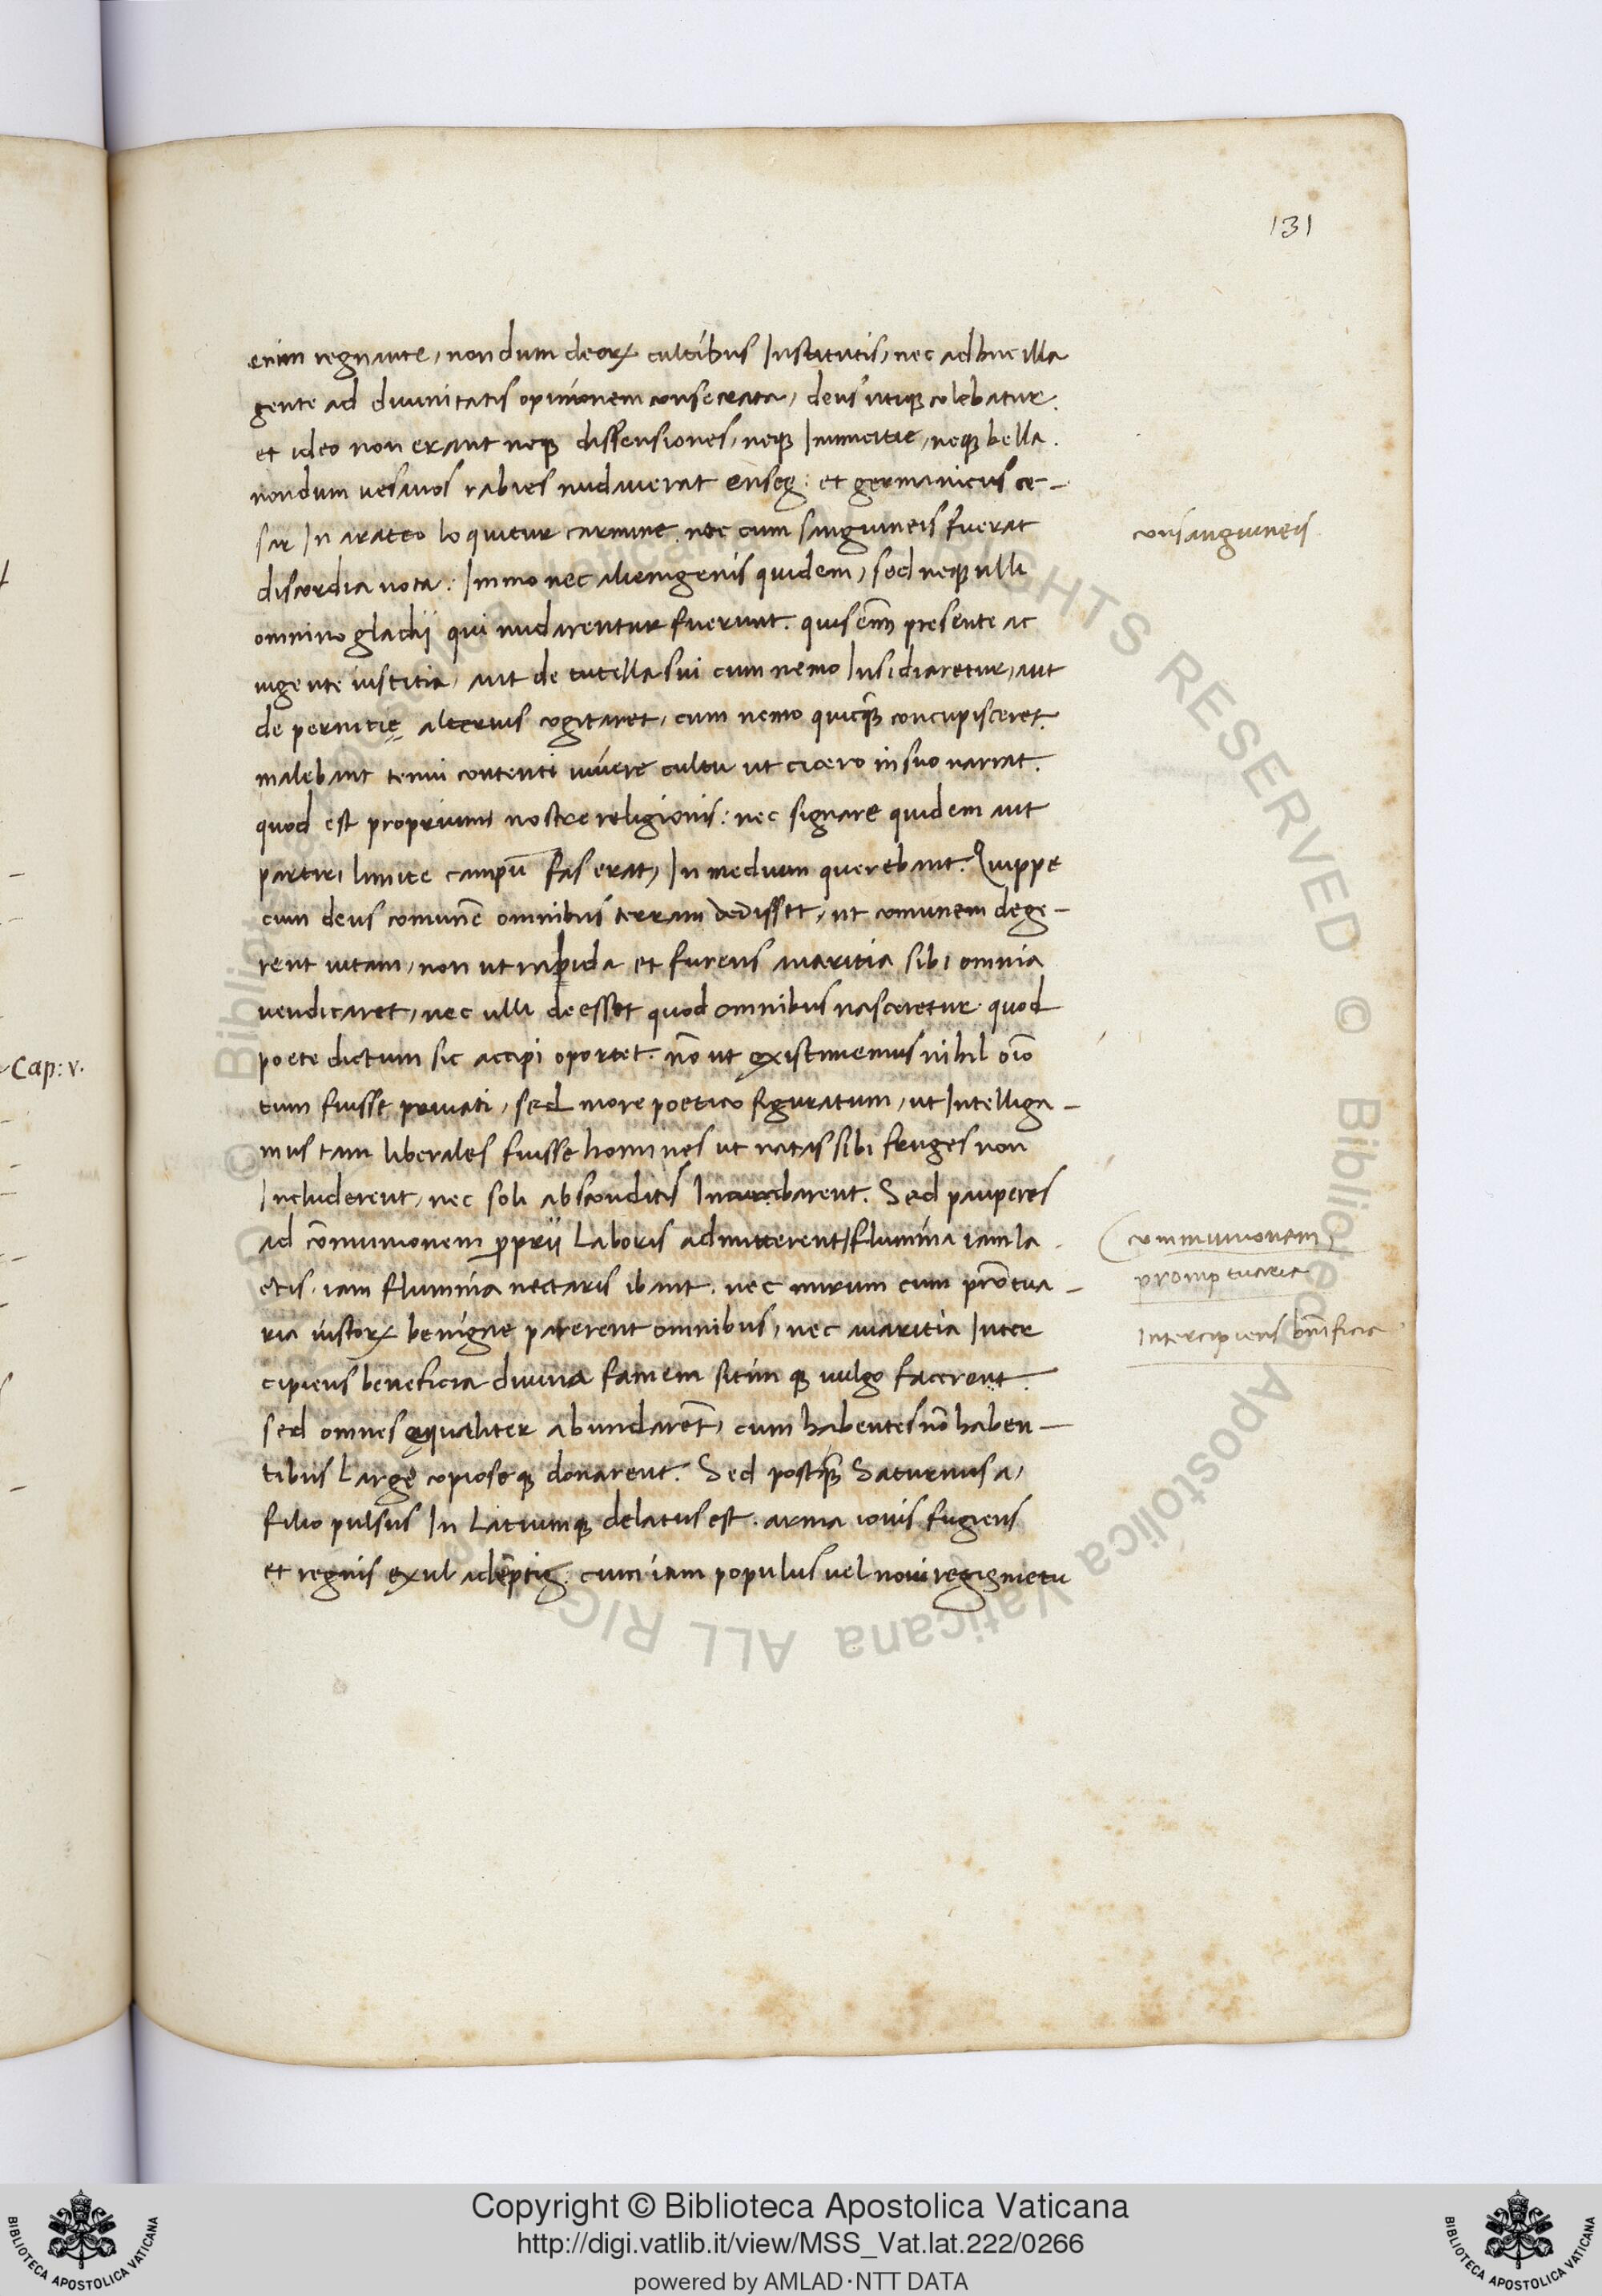 131
enim regnante, nondum deoꝝ cultibus Institutis, nec adhuc illa
gente ad diuinitatis opinionem consecrata, deus utiqꝫ colebatur.
et ideo non erant neqꝫ dissensiones, neqꝫ Inimicitie, neqꝫ bella.
nondum uesanos rabies nudauerat enseꝫ: et germanicus ce-
sar In arateo loquitur carmine. nec cum sanguineis fuerat
consanguineis
discordia nota: Immo nec alienigenis quidem, sed neqꝫ ulli
omnino gladij qui nudarentur fuerunt. quis em̄ presente ac
uigente iustitia, aut de tutella sui cum nemo Insidiaretur, aut
de pernitie alterius cogitaret, cum nemo quicq̄ concupisceret.
malebant tenui contenti uiuere cultu ut cicero in suo narrat.
quod est proprium nostre religionis: nec signare quidem aut
partiri limite campū fas erat, In medium querebant. Quippe
cum deus comunē omnibus terram dedisset, ut comunem dege-
rent uitam, non ut rapida et furens auaritia sibi omnia
uendicaret, nec ulli deesset quod omnibus nasceretur. quod
Cap: v.
poete dictum sic accipi oportet. nō ut existimemus nihil oīo
tum fuisse priuati, sed more poetico figuratum, ut Intelliga-
mus tam liberales fuisse homines ut natas sibi fruges non
Includerent, nec soli absconditis Incubarent. Sed pauperes
ad cōmunionem proprii Laboris admitterent, flumina iam la
communionem
etis. iam flumina nectaris ibant. nec mirum cum prōtua-
promptuaria
ria iustoꝝ benigne paterent omnibus, nec auaritia Inter
Intercipiens bn̄ificia
cipiens beneficia diuina famem sitimqꝫ uulgo facerent.
sed omnes equaliter abundarēt, cum habentes nō haben-
tibus Large copioseqꝫ donarent. Sed postq̄ Saturnus a,
filio pulsus In Latiumqꝫ delatus est. arma iouis fugiens
et regnis exul ademptiꝫ. cum iam populus uel noui regis metu
Copyright © Biblioteca Apostolica Vaticana
http://digi.vatlib.it/view/MSS_Vat.lat.222/0266
powered by AMLAD·NTT DATA
BIBLIOTECA APOSTOLICA VATICANA
BIBLIOTECA APOSTOLICA VATICANA
© Biblioteca Apostolica Vaticana ALL RIGHTS RESERVED